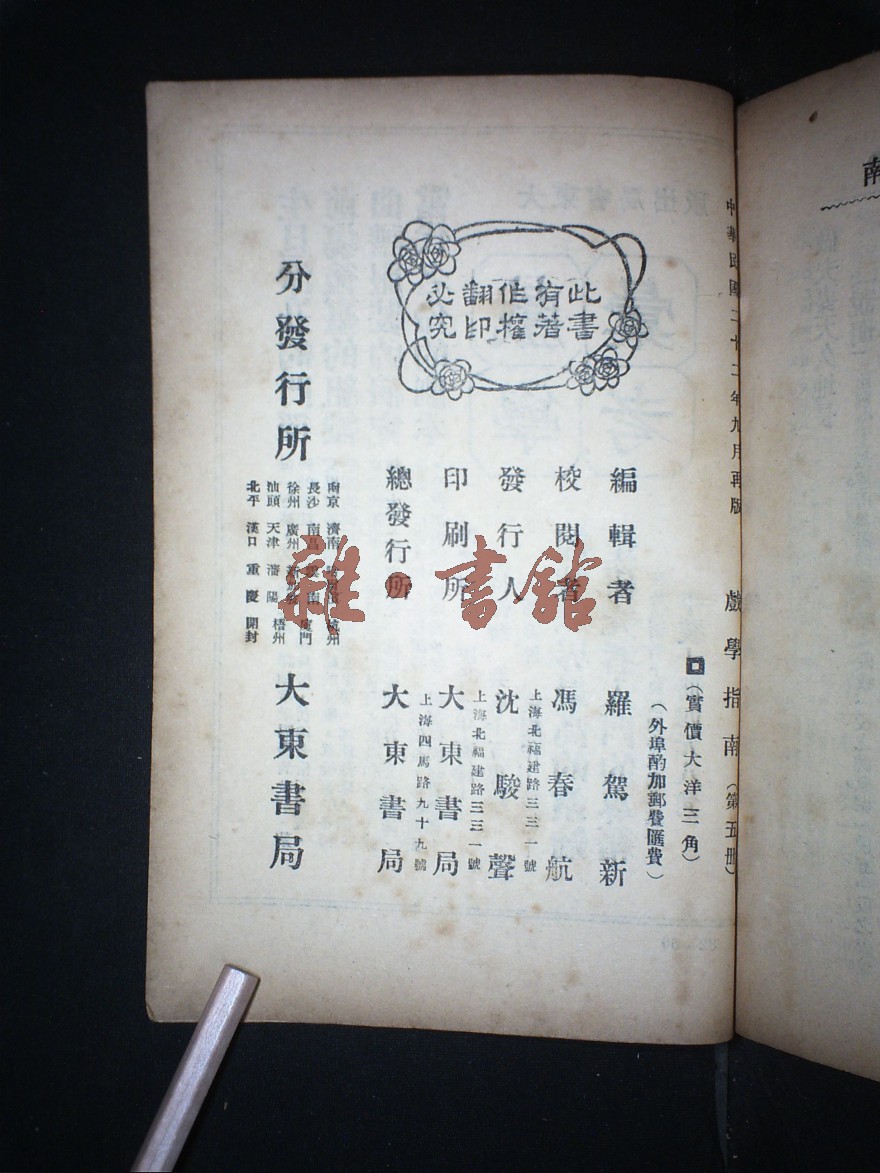 中華民國二十二年九月再版
戲學指南（第五冊）
（實價大洋三角）
（外埠酌加郵費匯費）
此書
有著
作權
翻印
必究
編輯者 羅駕新
校閱者 馮春航
上海北福建路三三一號
發行人 沈駿聲
上海北福建路三三一號
印刷所 大東書局
上海四馬路九十九號
總發行所 大東書局
分發行所
南京 濟南 杭州
長沙 南昌 廈門
徐州 廣州 梧州
汕頭 天津 瀋陽
北平 漢口 重慶 開封
大東書局
雜·書館
南